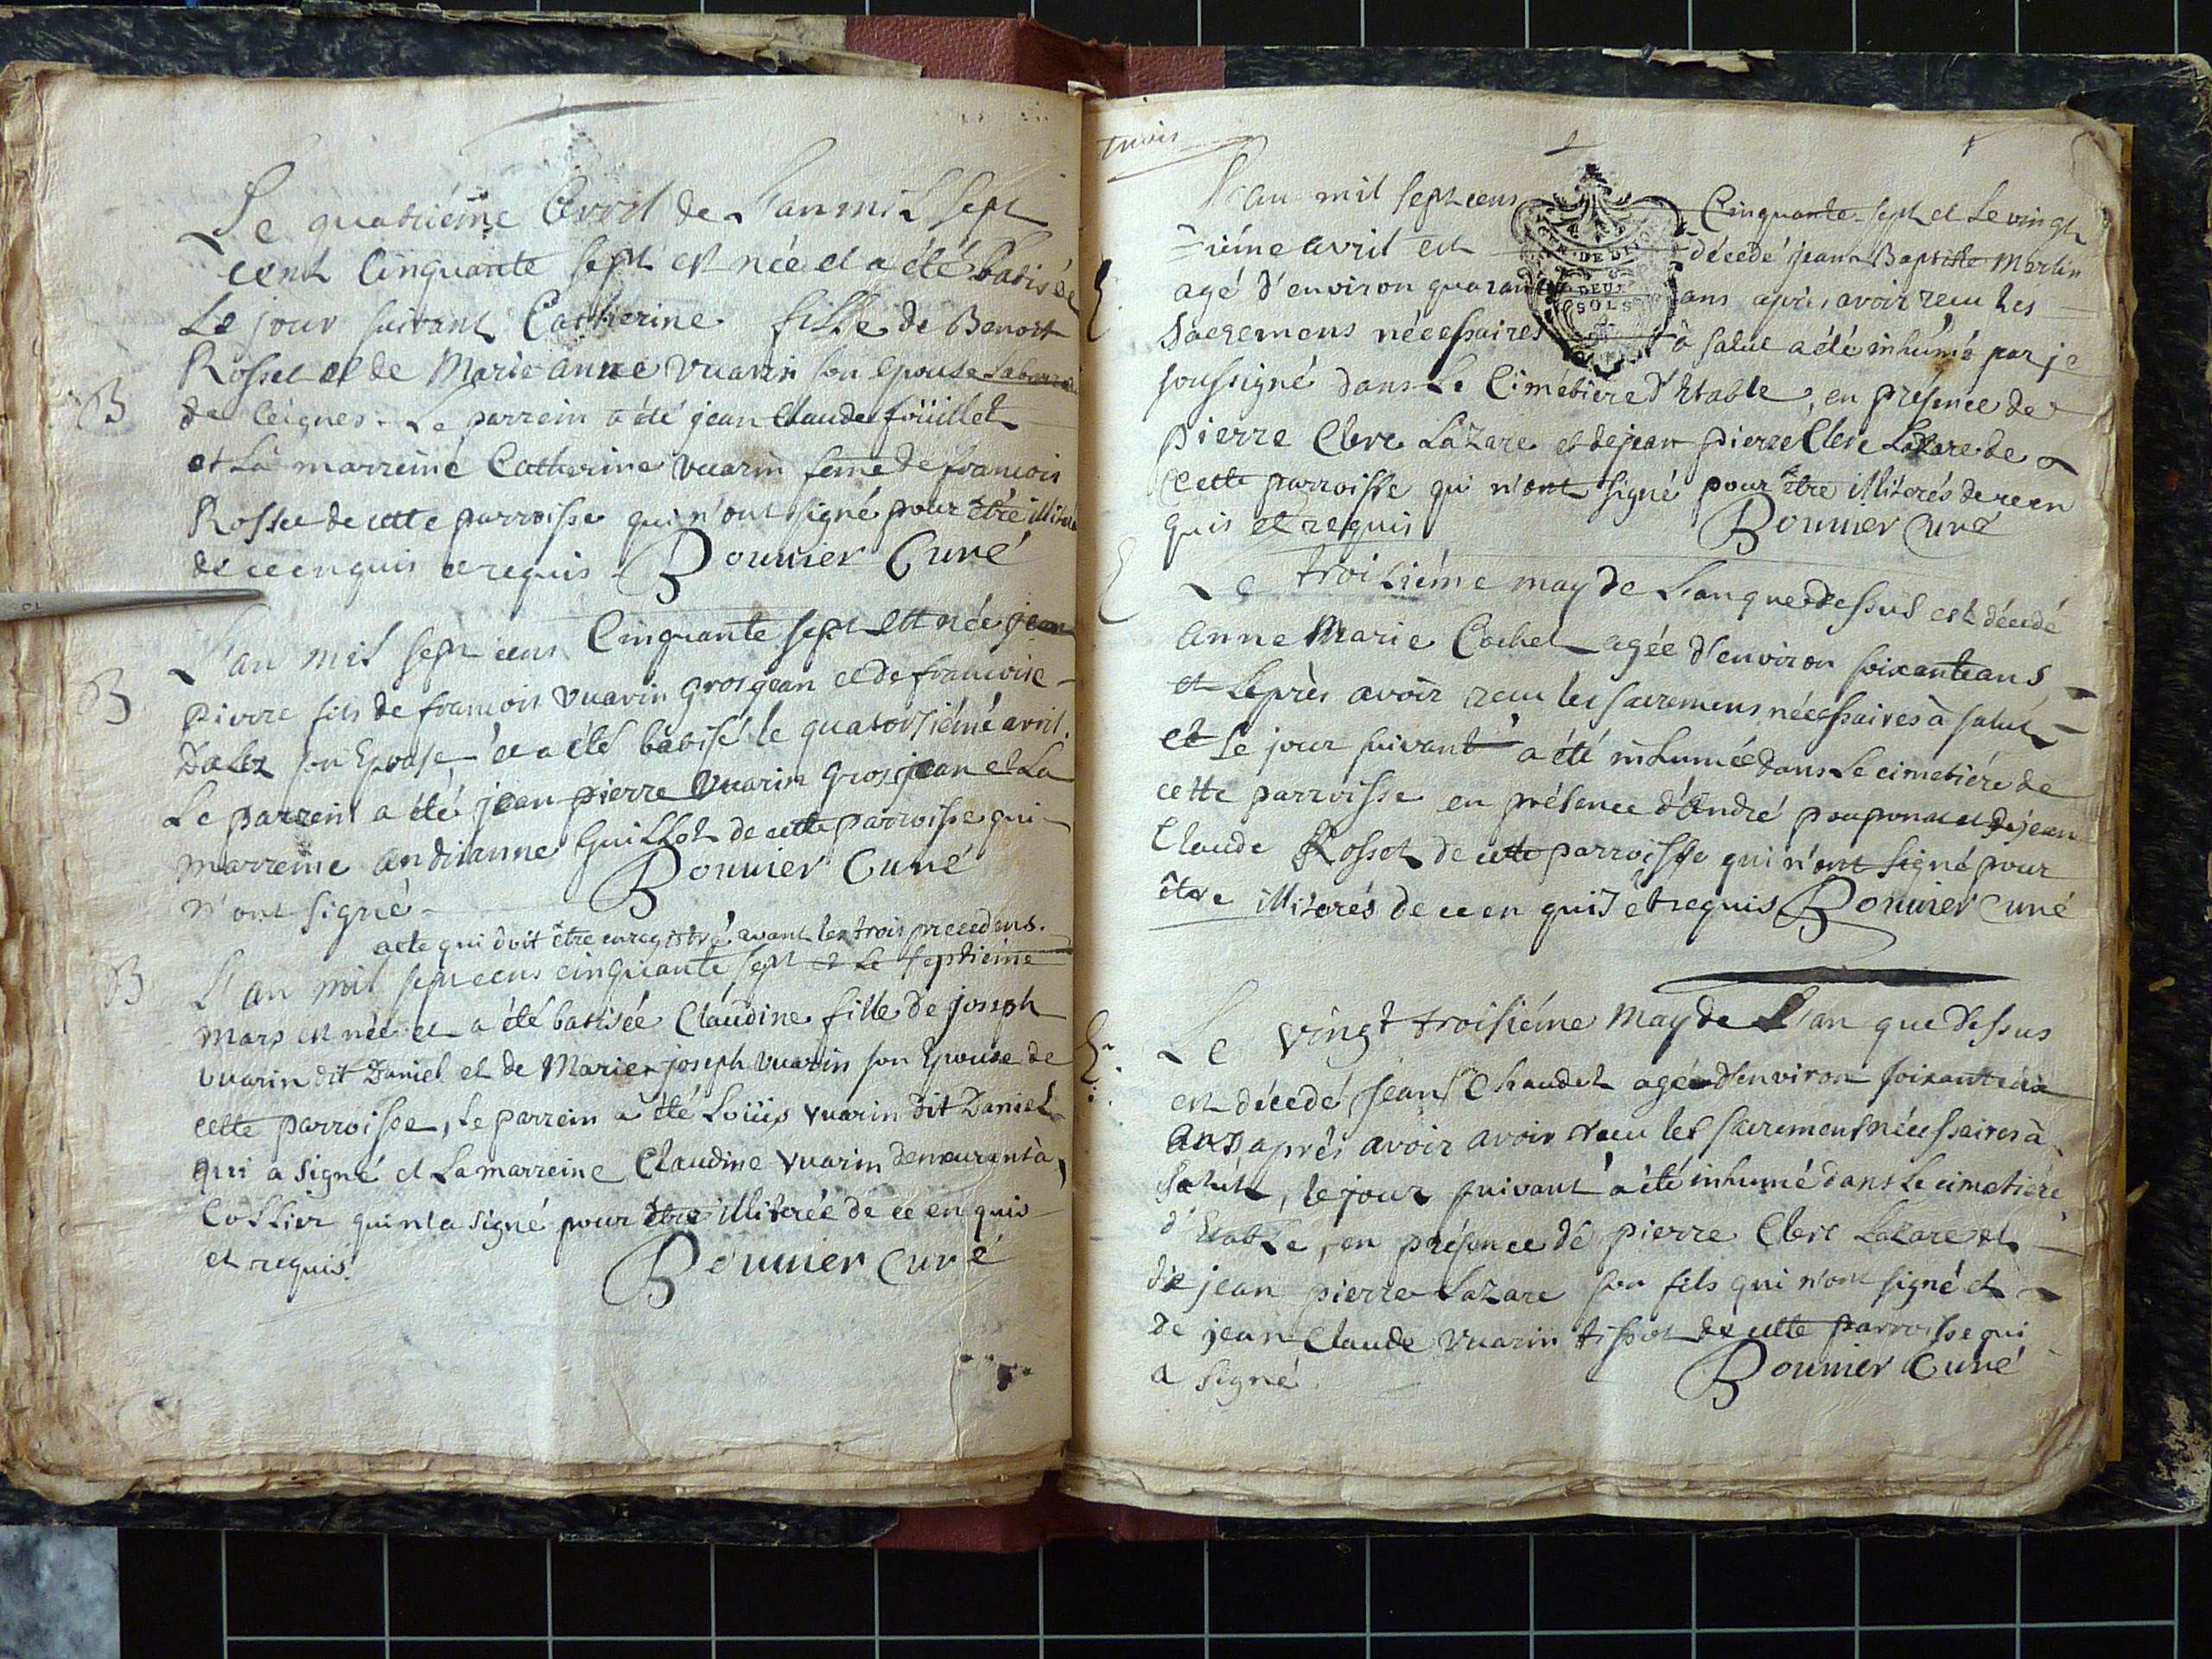 Le quatriéme Avril de L'an mil sept
cent Cinquante sept est née et a été batisée
Le jour suivant Catherine fille de Benoit
Rosset et de Marie anne Vuarin son Epouse
B
de Ceignes. Le parrein a été jean Claude foüillet
et La marreine Catherine vuarin feme de francois
Rosset de cette parroisse qui n'ont signé pour être
de ce enquis et requis. Bonnier Curé
L'an mil sept cens Cinquante sept est née jean
B
pierre fils de francois Vuarin grosjean et de francoise
son Epouse et a été batisé le quatorsiéme avril.
Le parrein a été jean pierre Vuarin Grosjean et La
marreine andrianne Guillot de cette parroisse qui
n'ont signé. Bonnier Curé
acte qui doit être enregistré avant les trois precedens.
B
L'an mil sept cens cinquante sept et Le septiéme
mars est née et a été batisée Claudine fille de joseph
vuarin dit Daniel et de Marie joseph vuarin son Epouse de
cette parroisse, Le parrein a été Loüis vuarin dit Daniel
qui a signé et La marreine Claudine Vuarin demeurant à
qui n'a signé pour être illiterée de ce enquis
et requis. Bonnier Curé
L'an mil sept cens Cinquante sept et Le vingt
GEN. DE DIJON
DEUX
SOLS
iéme avril est décedé jean Baptiste Martin
agé d'environ quarante ans après avoir recu les
sacremens nécessaires à salut a été inhumé par je
soussigné dans Le Cimétiére d'Etable, en présence de
pierre Clerc Lazare et de jean pierre Clerc Lazare de
cette parroisse qui n'ont signé pour être illiterés de ce en
quis et requis Bonnier Curé
Le troisiéme may de L'an que dessus est décedé
anne Marie Cochet agée d'environ soixante ans
et après avoir recu les sacremens nécessaires à salut
et le jour suivant a été inhumée dans Le cimetiére de
cette parroisse en présence d'André et de jean
Claude Rosset de cette parroisse qui n'ont signé pour
être illiterés de ce en quis et requis Bonnier Curé
Le vingt troisiéme May de L'an que dessus
est décedé jean Chaudet agé d'environ
ans après avoir avoir recu les sacremens nécessaires à
salut, le jour suivant a été inhumé dans Le cimetiére
d'Etable, en présence de pierre Clerc Lazare et
de jean pierre Lazare son fils qui n'ont signé et
de jean Claude Vuarin tissot de cette parroisse qui
a signé Bonnier Curé